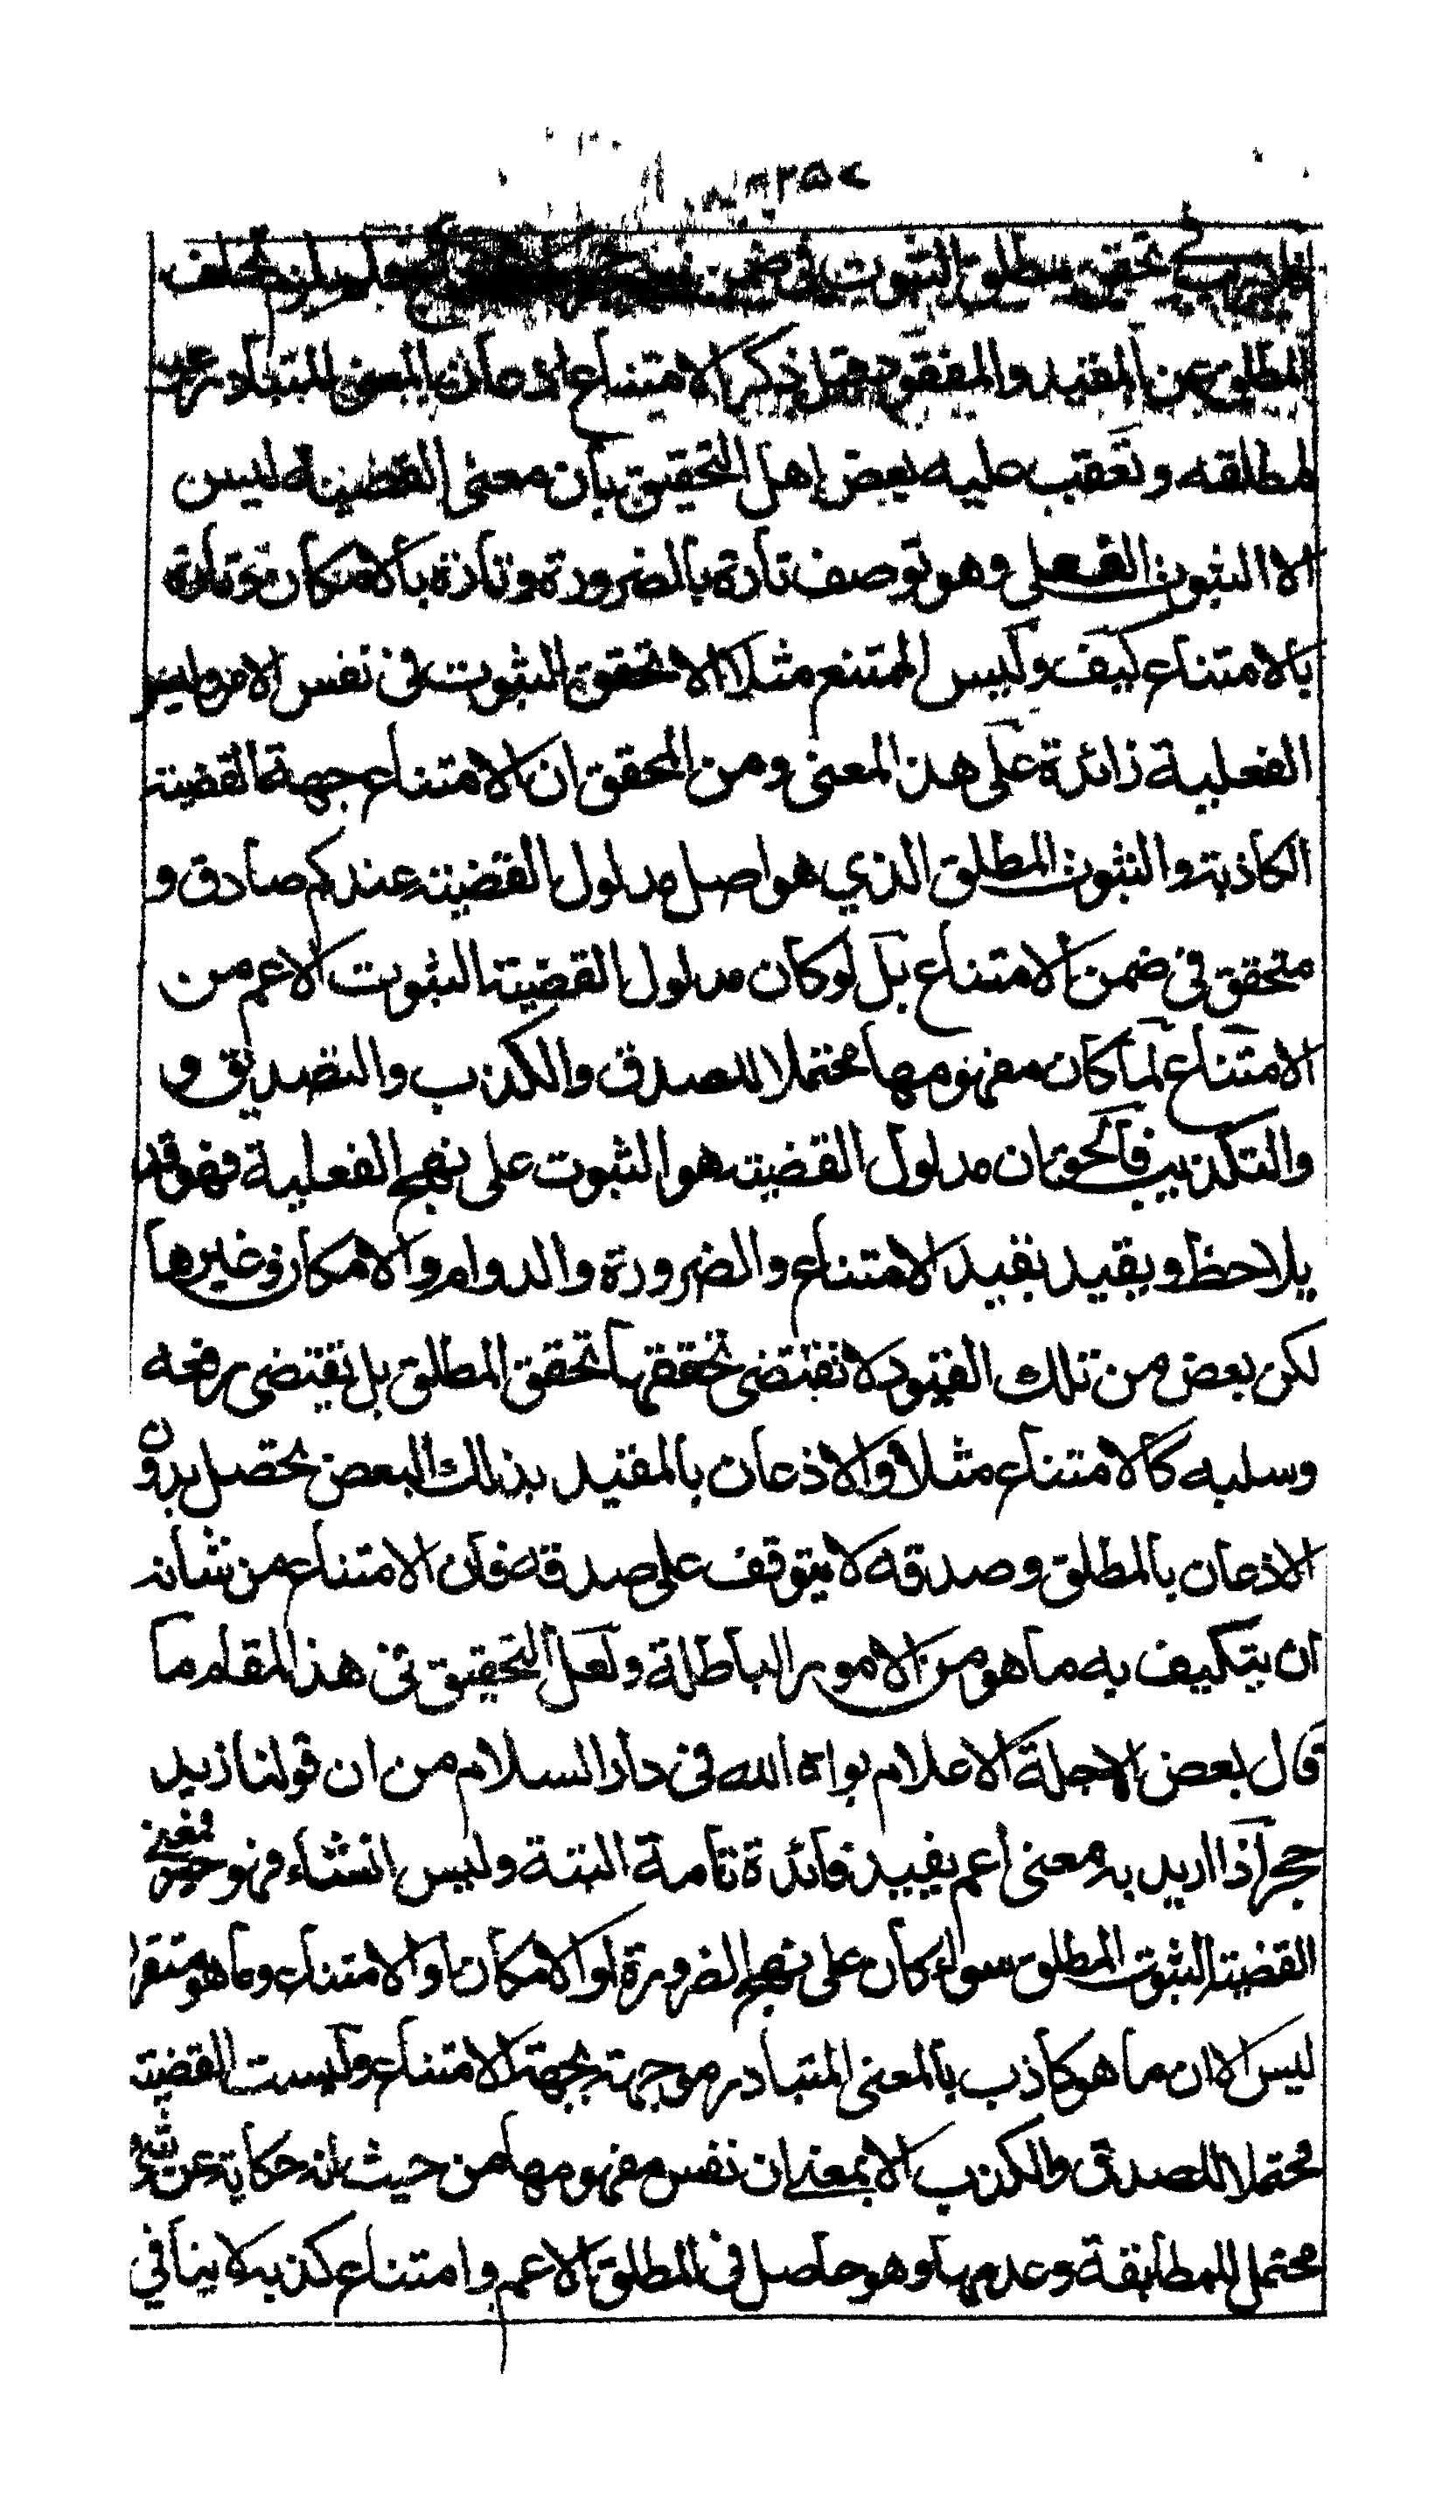 تحقق مطلق الثبوت في ضمن تخلف
المطلق عن المقيد والمفقود قبل ذكر الامتناع اذعان بالمعنى المتبادر
لمطلقه وتعقب عليه بعض اهل التحقيق بان معنى القضية ليس
الا الثبوت الفعلي وهو توصف تارة بالضرورة وتارة بالامكان وتارة
بالامتناع كيف وليس الممتنع مثلا الا تحقق الثبوت في نفس الامر وليس
الفعلية زائدة على هذا المعنى ومن المحقق ان الامتناع جهة القضية
الكاذبة والثبوت المطلق الذي هو اصل مدلول القضية عندكم صادق و
متحقق في ضمن الامتناع بل لو كان مدلول القضية الثبوت الاعم من
الامتناع لما كان مفهومها محتملا للصدق والكذب والتصديق و
والتكذيب فالحق ان مدلول القضية هو الثبوت على نهج الفعلية فهو قد
يلاحظ ويقيد بقيد الامتناع والضرورة والدوام والامكان وغيرها
لكن بعض من تلك القيود لا تقتضى تحققها تحقق المطلق بل يقتضى رفعه
وسلبه كالامتناع مثلا والاذعان بالمقيد بذلك البعض يحصل بدون
الاذعان بالمطلق وصدقه لا يتوقف على صدقه فان الامتناع من شانه
ان يتكيف به ما هو من الامور الباطلة ولعل التحقيق في هذا المقام ما
قال بعض الاجلة الاعلام بواه الله في دار السلام من ان قولنا زيد
حجر اذا اريد به معنى اعم يفيد فائدة تامة البتة وليس انشاء فهو خبر فمعنى
القضية الثبوت المطلق سواء كان على نهج الضرورة او الامكان او الامتناع وما هو متقرر
ليس الا ان ما هو كاذب بالمعنى المتبادر موجهة بجهة الامتناع وليست القضية
محتملا للصدق والكذب الا بمعنى ان نفس مفهومها من حيث انه حكاية عن شيء
محتمل للمطابقة وعدمها وهو حاصل في المطلق الاعم وامتناع كذبه لا ينافي